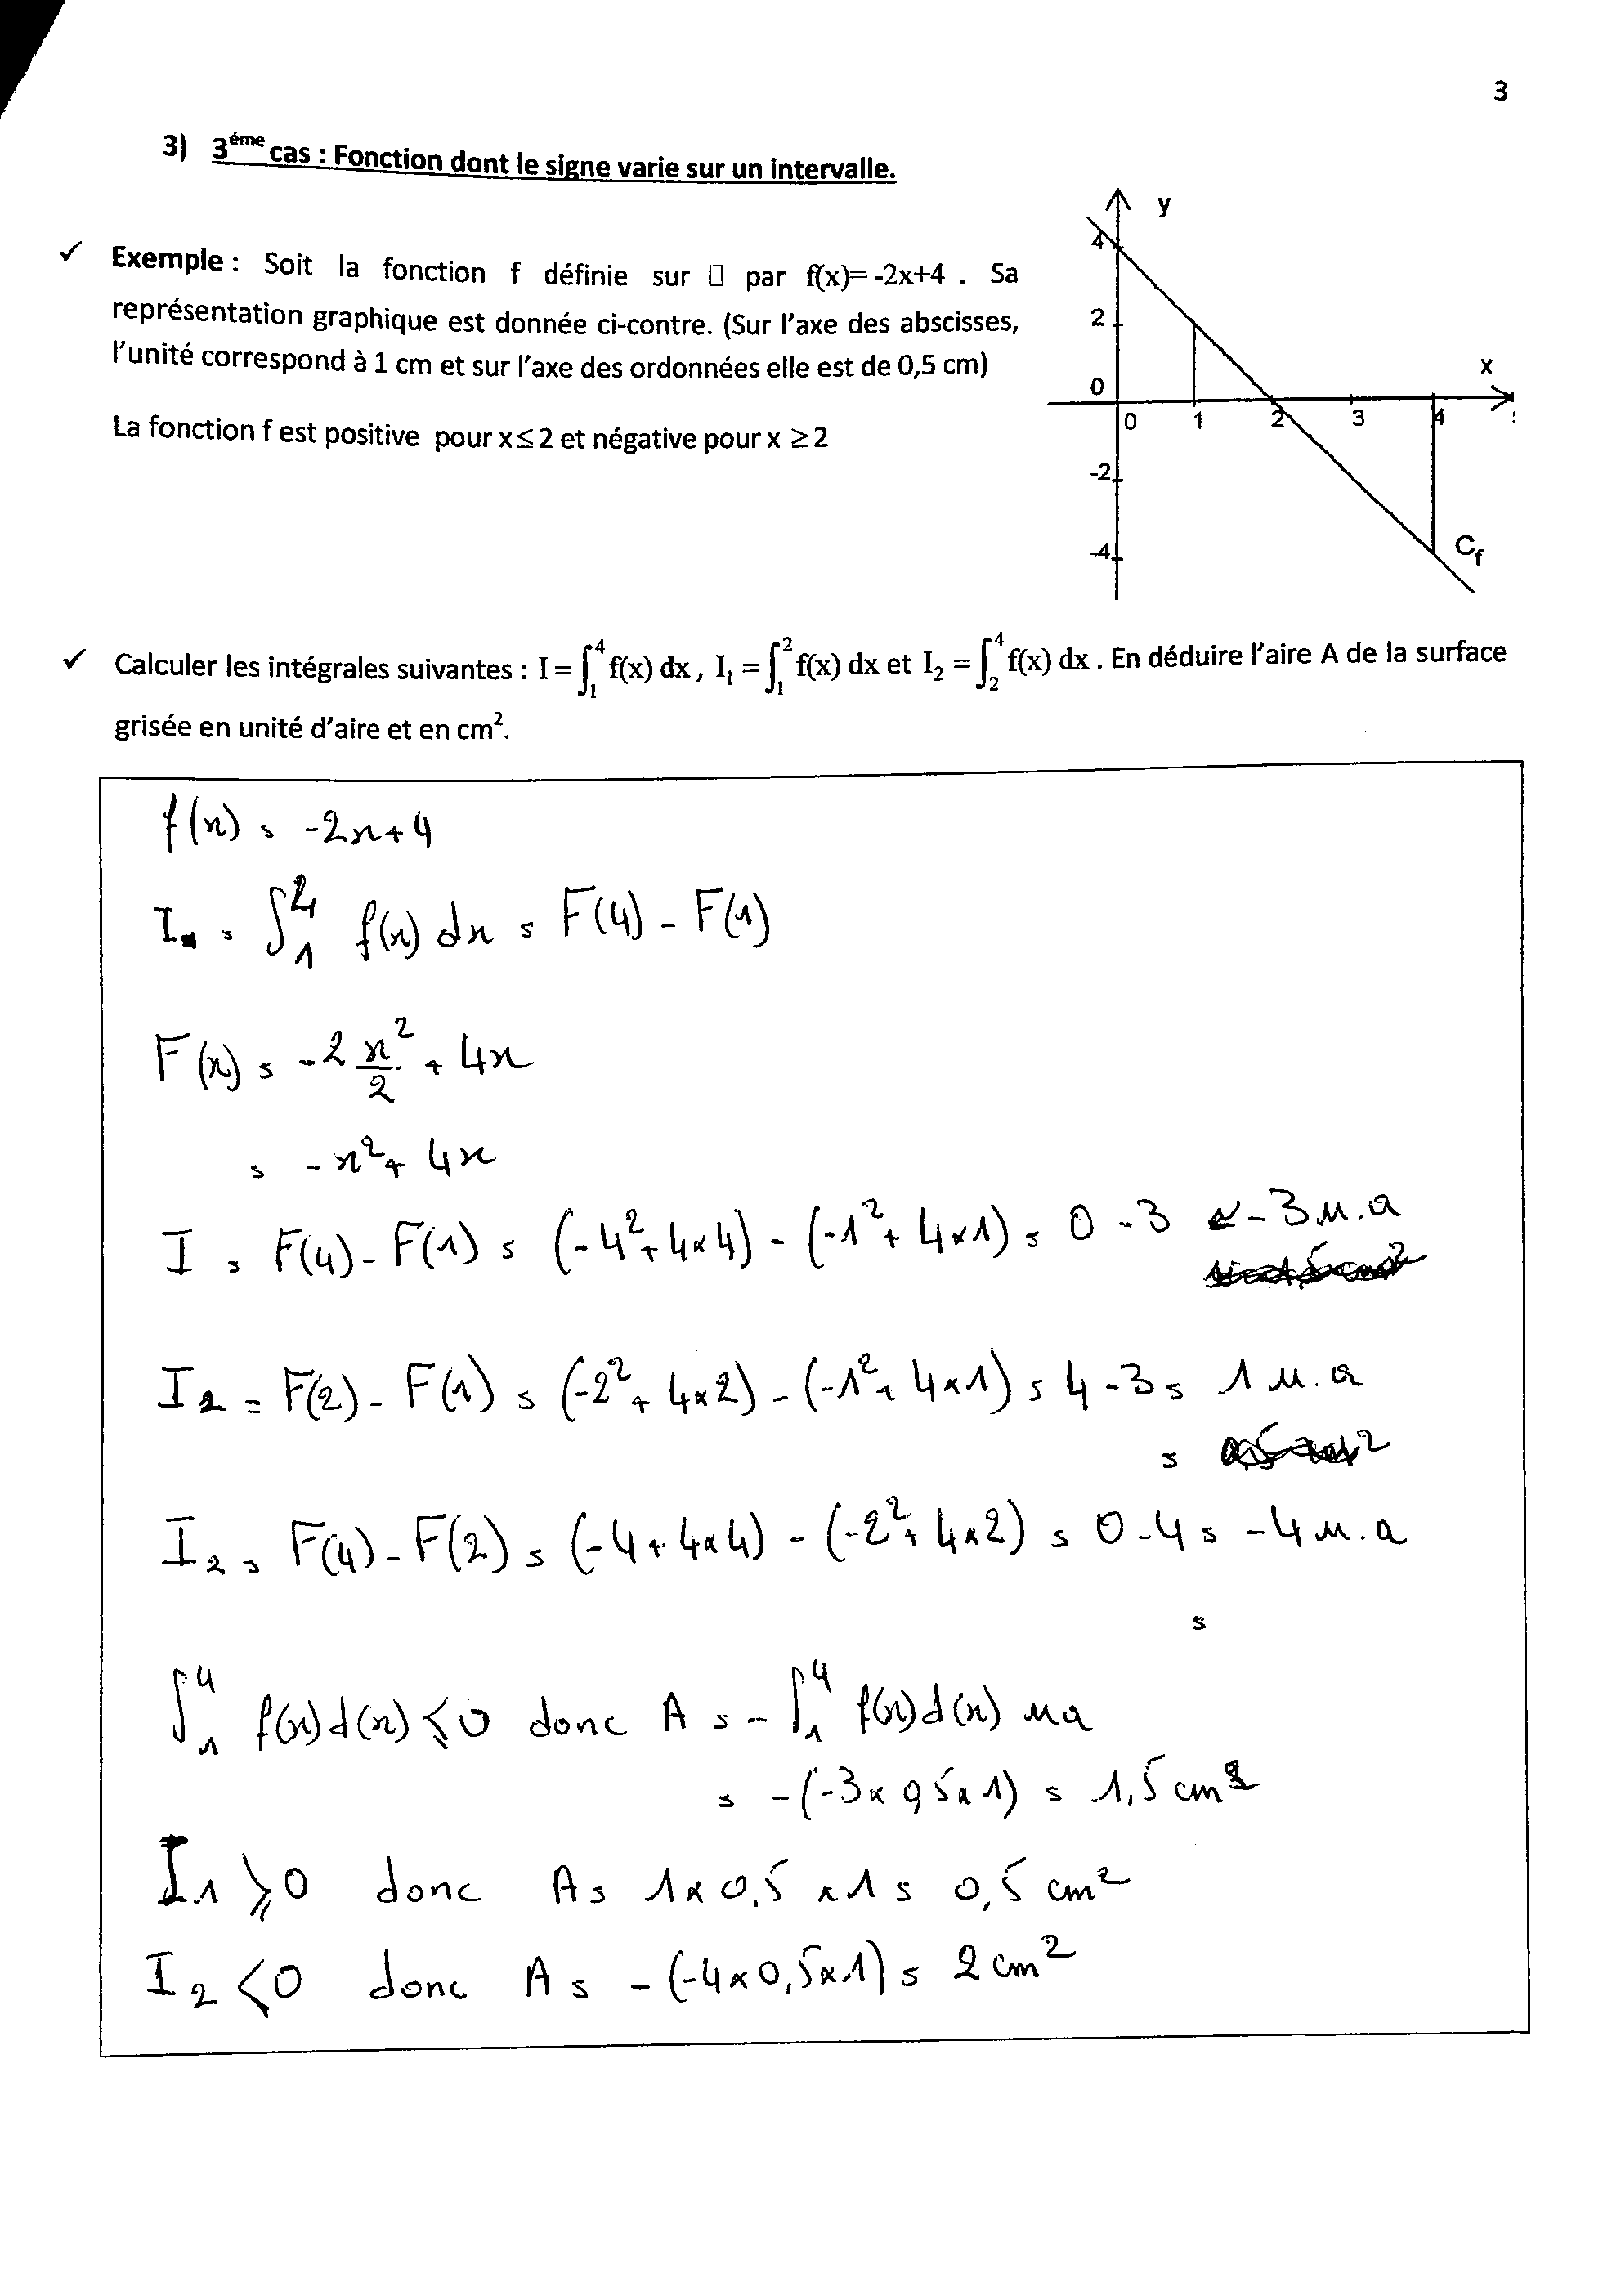 3
3) 3éme cas : Fonction dont le signe varie sur un intervalle.
✓ Exemple : Soit la fonction f définie sur □ par f(x)= -2x+4 . Sa
représentation graphique est donnée ci-contre. (Sur l'axe des abscisses,
l'unité correspond à 1 cm et sur l'axe des ordonnées elle est de 0,5 cm)
La fonction f est positive pour x ≤ 2 et négative pour x ≥ 2
y
4
2
x
0
0 1 2 3 4
-2
-4
Cf
✓ Calculer les intégrales suivantes : I = ∫₁⁴ f(x) dx , I₁ = ∫₁² f(x) dx et I₂ = ∫₂⁴ f(x) dx . En déduire l'aire A de la surface
grisée en unité d'aire et en cm².
f(x) = -2x+4
I = ∫₁⁴ f(x) dx = F(4) - F(1)
F(x) = -2 x²/2 + 4x
= -x² + 4x
I = F(4) - F(1) = (-4² + 4×4) - (-1² + 4×1) = 0 - 3 = -3 u.a
I₁ = F(2) - F(1) = (-2² + 4×2) - (-1² + 4×1) = 4 - 3 = 1 u.a
=
I₂ = F(4) - F(2) = (-4 + 4×4) - (-2² + 4×2) = 0 - 4 = -4 u.a
=
∫₁⁴ f(x) d(x) ≤ 0 donc A = - ∫₁⁴ f(x) d(x) ua
= -(-3 × 0,5 × 1) = 1,5 cm²
I₁ ≥ 0 donc A = 1 × 0,5 × 1 = 0,5 cm²
I₂ < 0 donc A = -(-4 × 0,5 × 1) = 2 cm²